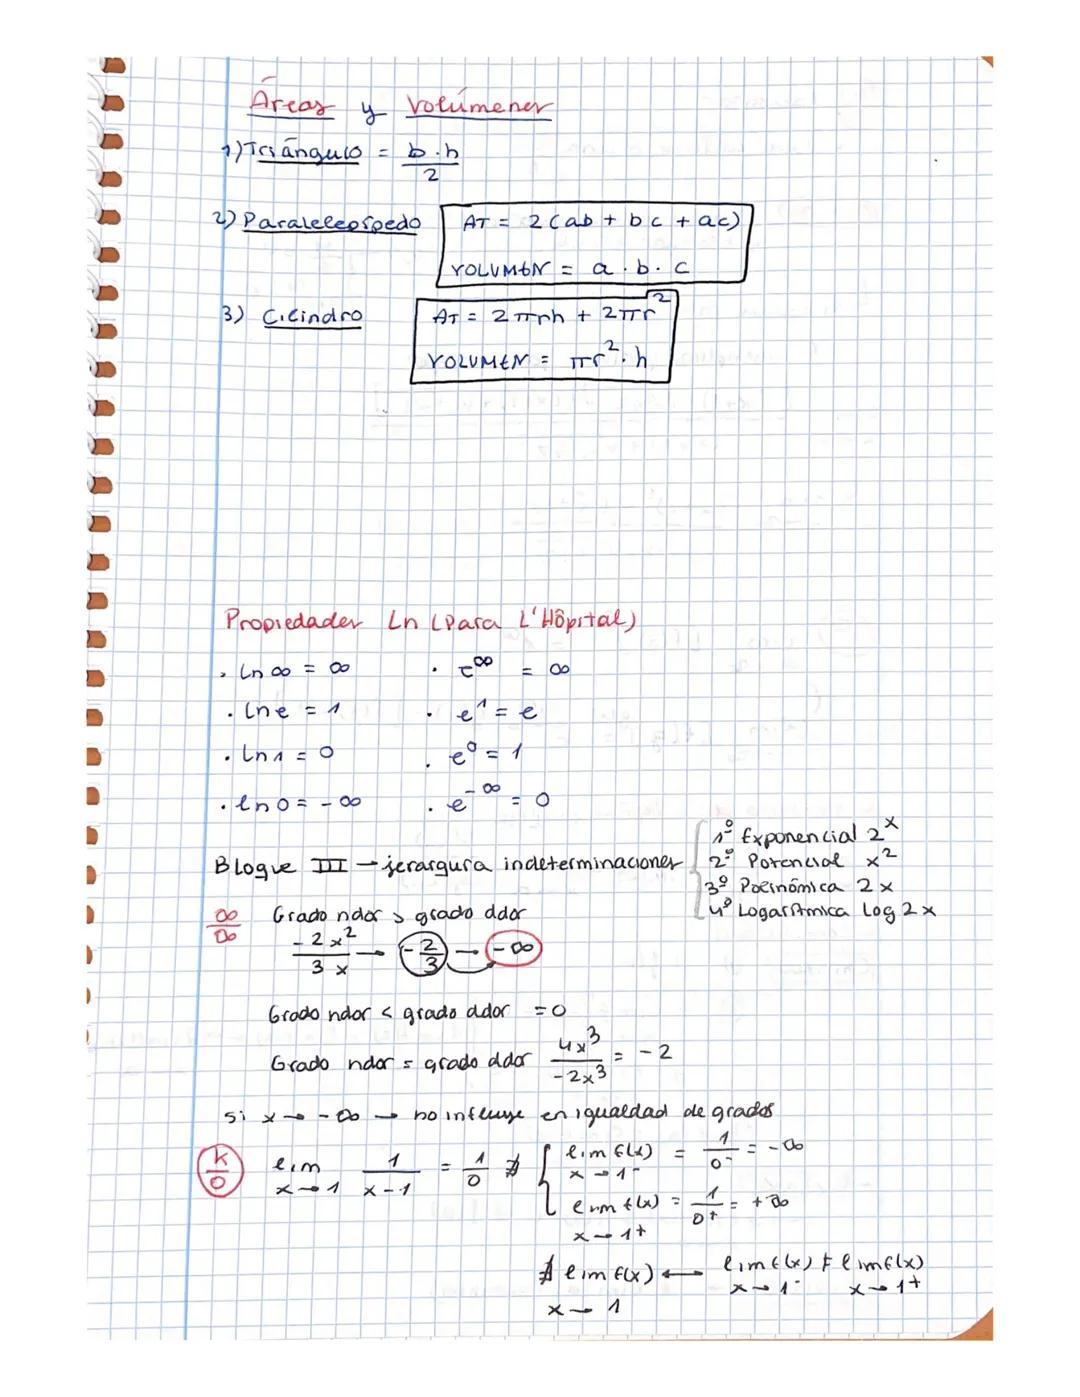 Áreas y Volúmenes
1) Triángulo = b·h / 2
2) Paralelepípedo
AT = 2(ab + bc + ac)
VOLUMEN = a·b·c
3) Cilindro
AT = 2πrh + 2πr²
VOLUMEN = πr²·h
Propiedades Ln (Para L'Hôpital)
· Ln ∞ = ∞ · e^∞ = ∞
· Ln e = 1 · e^1 = e
· Ln 1 = 0 · e^0 = 1
· Ln 0 = -∞ · e^-∞ = 0
Bloque III → jerarquía indeterminaciones
1º Exponencial 2^x
2º Potencial x²
3º Polinómica 2x
4º Logarítmica Log 2x
∞/∞ Grado ndor > grado ddor
-2x² / 3x → -2/3 → -∞
Grado ndor < grado ddor = 0
Grado ndor = grado ddor 4x³ / -2x³ = -2
si x → -∞ → no influye en igualdad de grados
K/0 lim x→1 1/x-1 = 1/0 ∄
lim f(x) x→1⁻ = 1/0⁻ = -∞
lim f(x) x→1+ = 1/0+ = +∞
∄ lim f(x) x→1 ← lim f(x) x→1⁻ ≠ lim f(x) x→1+